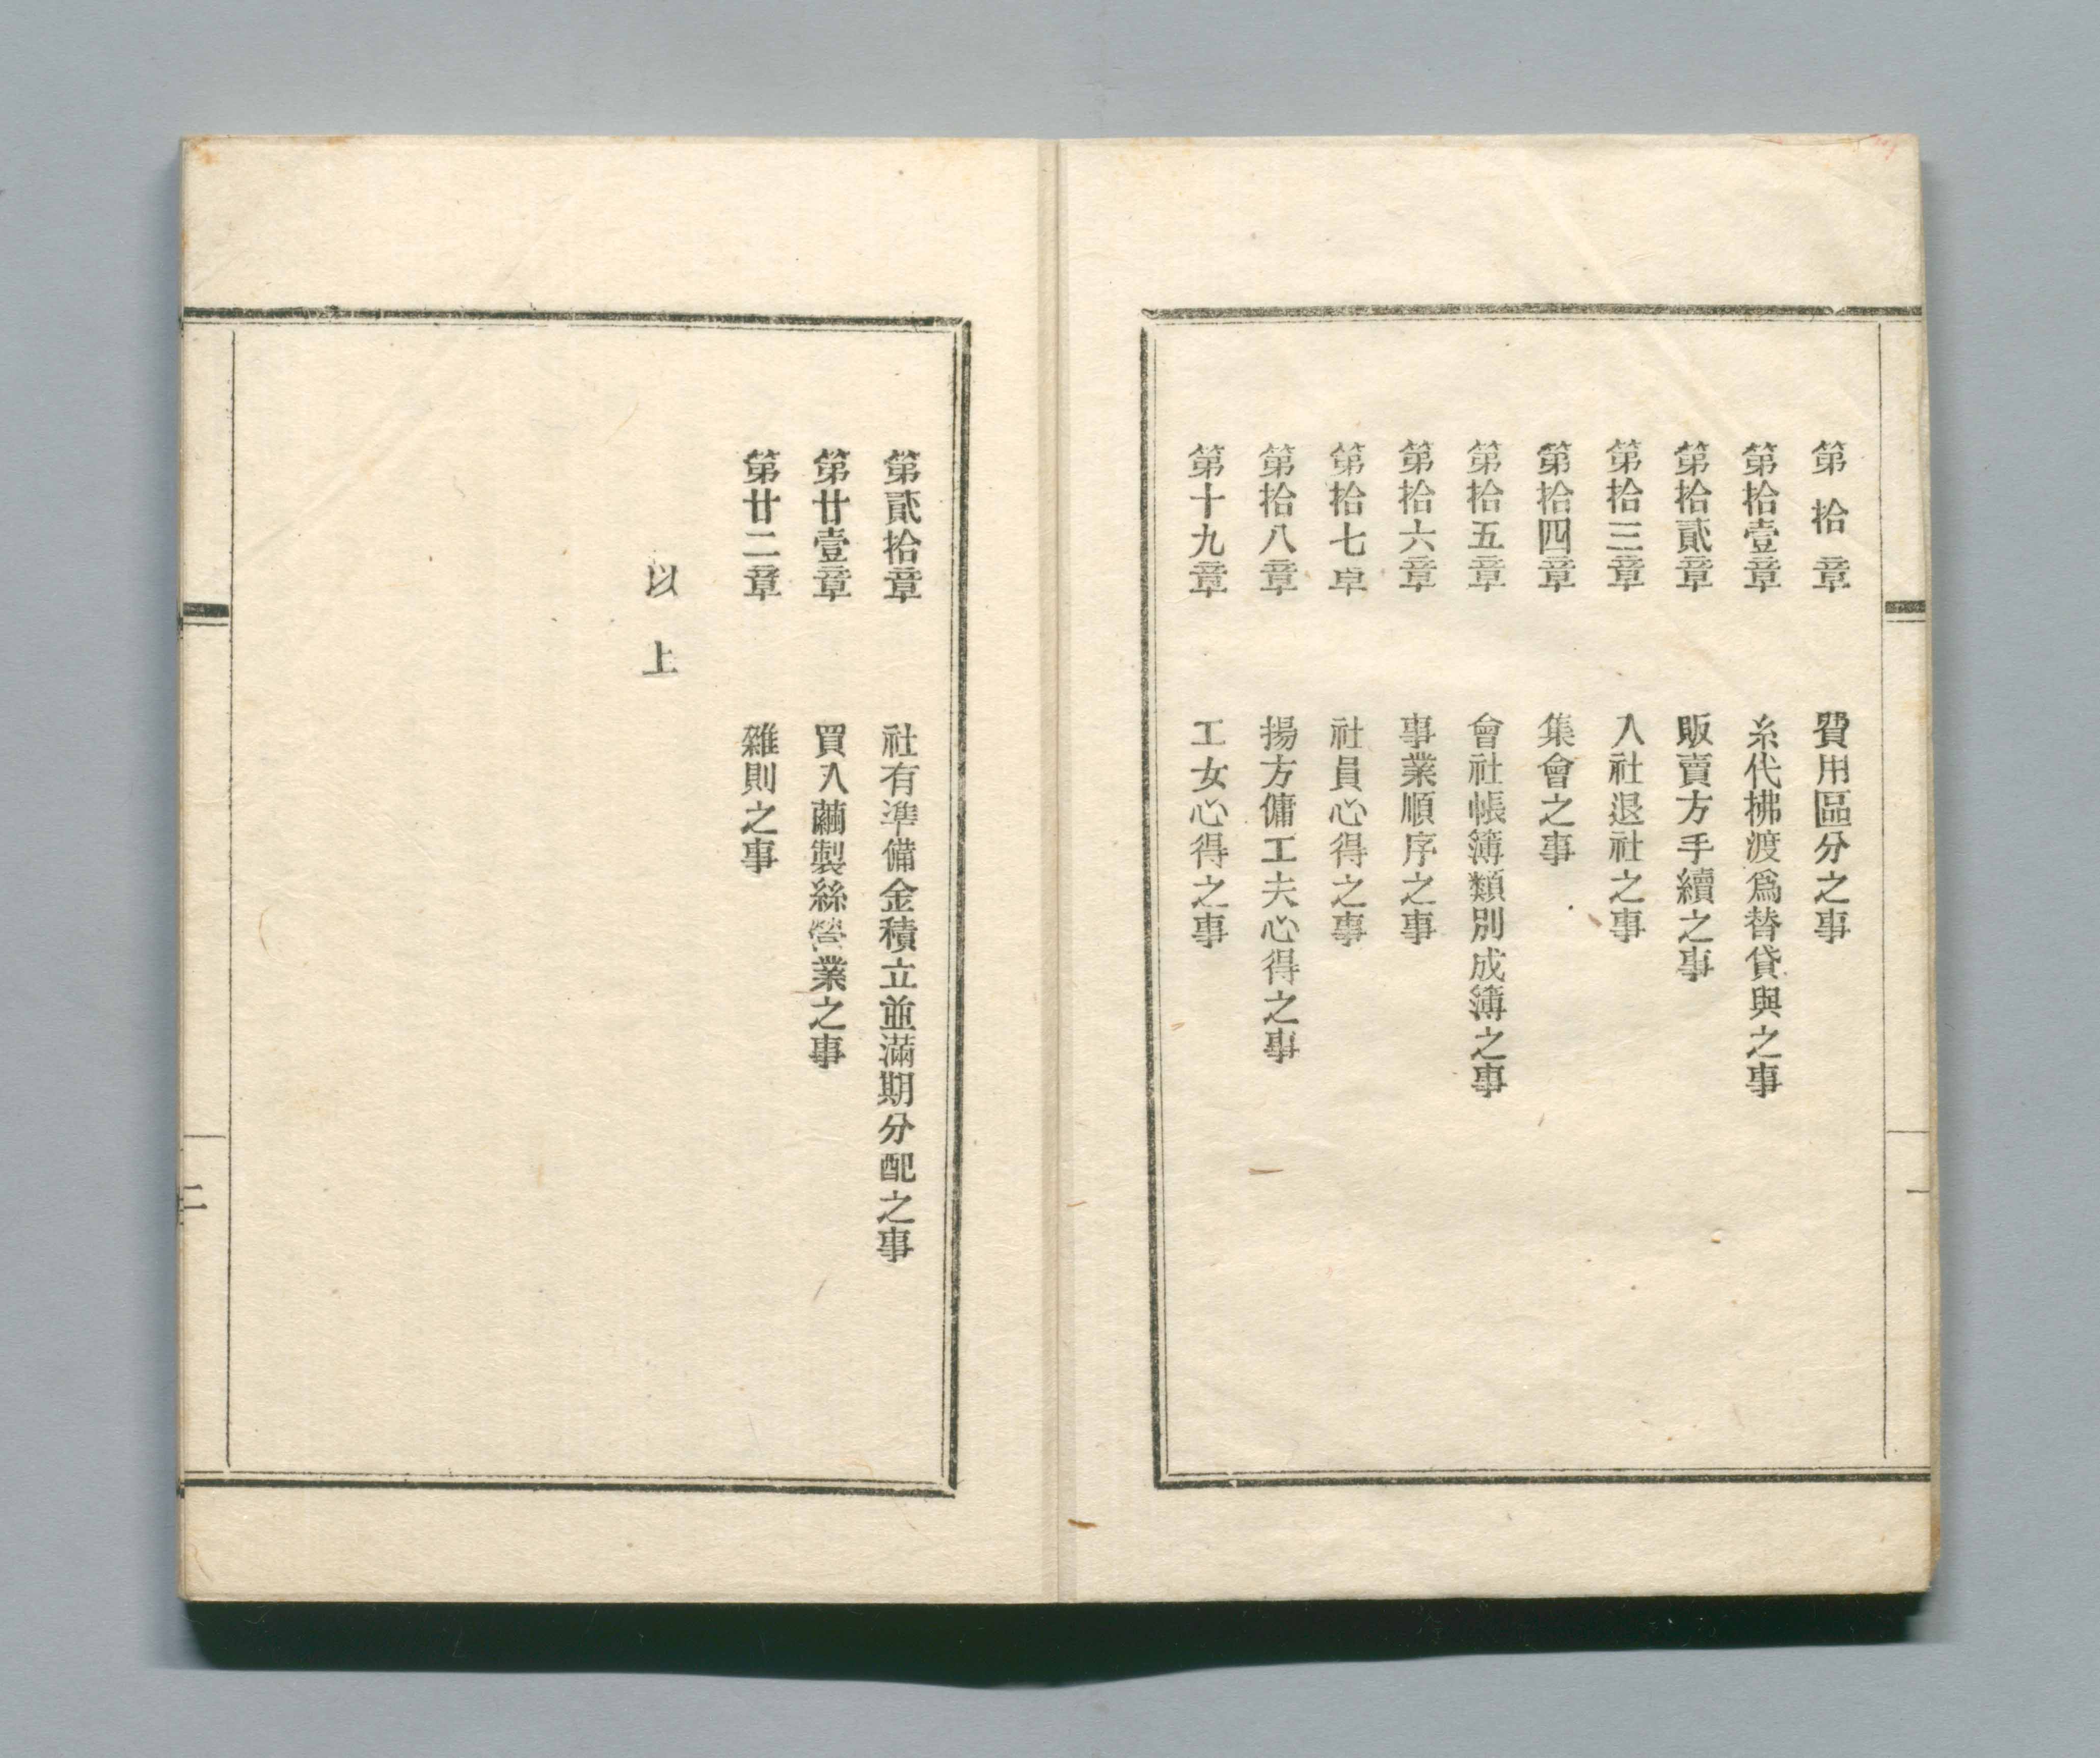 第拾章 費用區分之事
第拾壹章 糸代拂渡爲替貸與之事
第拾貳章 販賣方手續之事
第拾三章 入社退社之事
第拾四章 集會之事
第拾五章 會社帳簿類別成簿之事
第拾六章 事業順序之事
第拾七章 社員心得之事
第拾八章 揚方傭工夫心得之事
第十九章 工女心得之事
一
第貳拾章 社有準備金積立並滿期分配之事
第廿壹章 買入繭製絲營業之事
第廿二章 雜則之事
以上
二